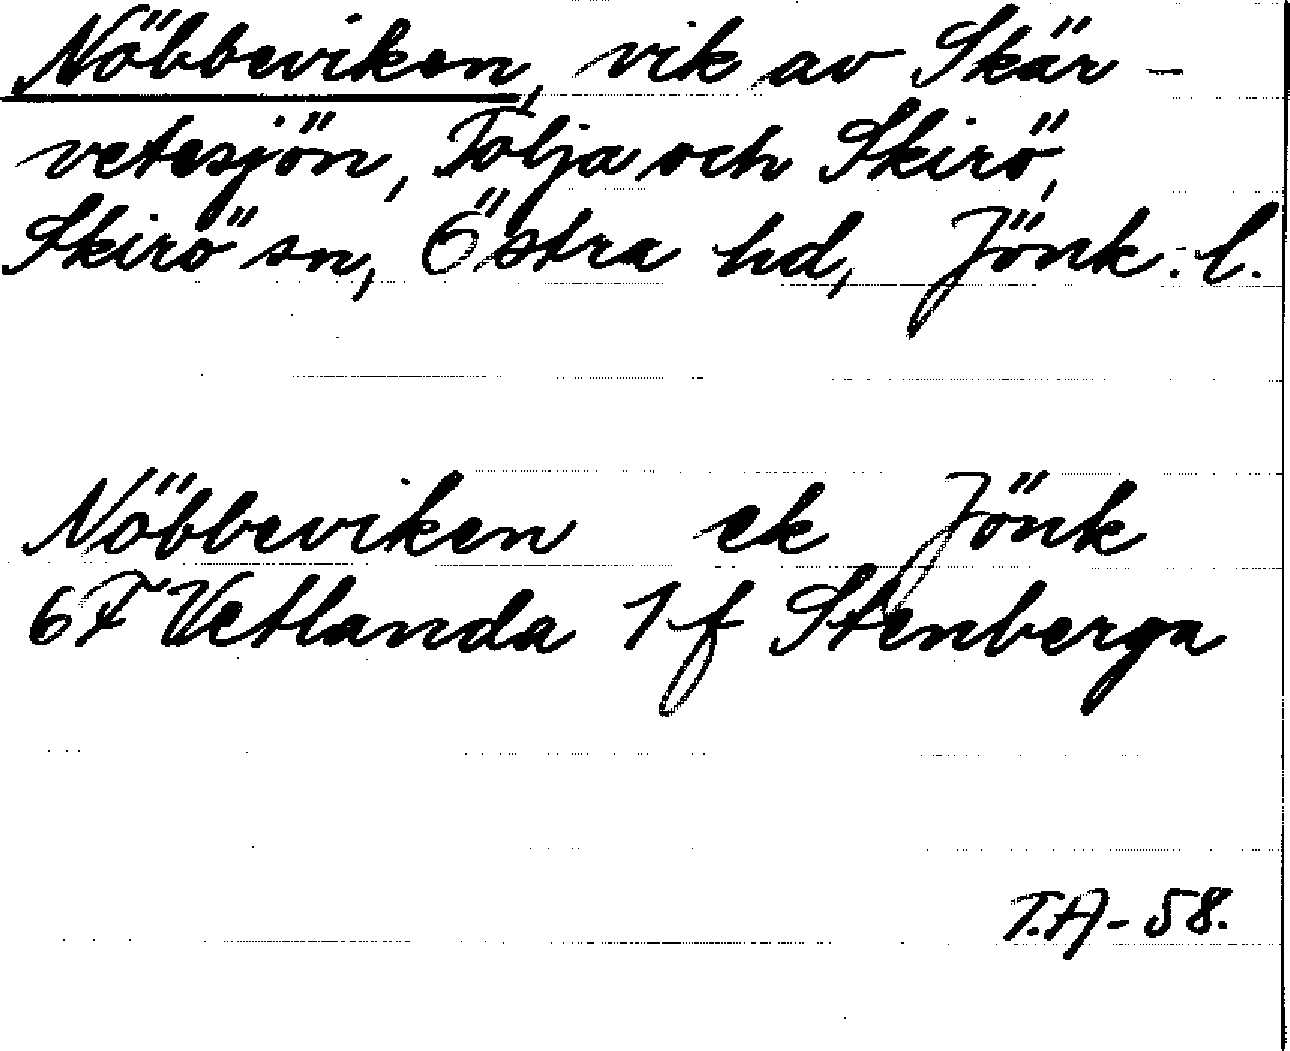 Nöbbeviken, vik av Skär-
vetesjön, Följa och Skirö,
Skirö sn, Östra hd, Jönk. l.
Nöbbeviken ek Jönk
6F Vetlanda 1f Stenberga
T.A-58.